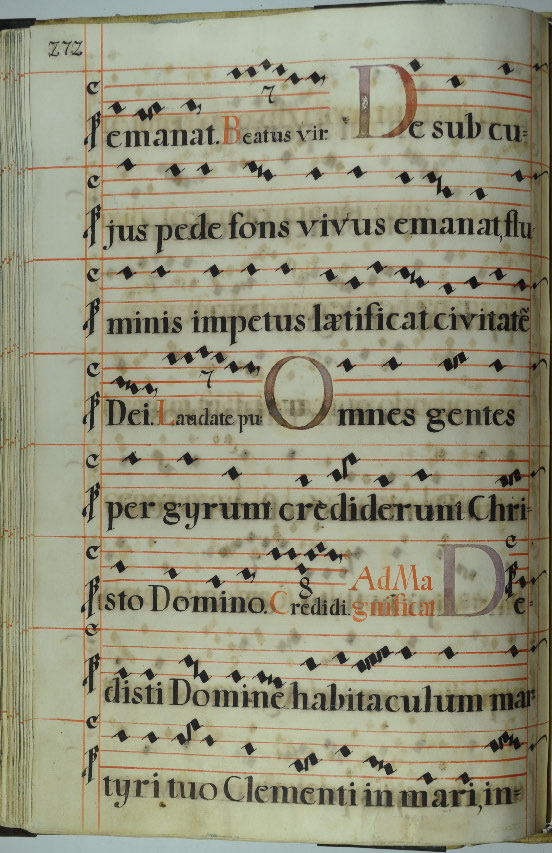 272
7
emanat. Beatus vir De sub cu=
jus pede fons vivus emanat, flu
minis impetus lætificat civitatē
7
Dei. Laudate pu: Omnes gentes
per gyrum crediderunt Chri-
8
sto Domino. Credidi. Ad Ma
gnificat De-
disti Domine habitaculum mar-
tyri tuo Clementi in mari, in=